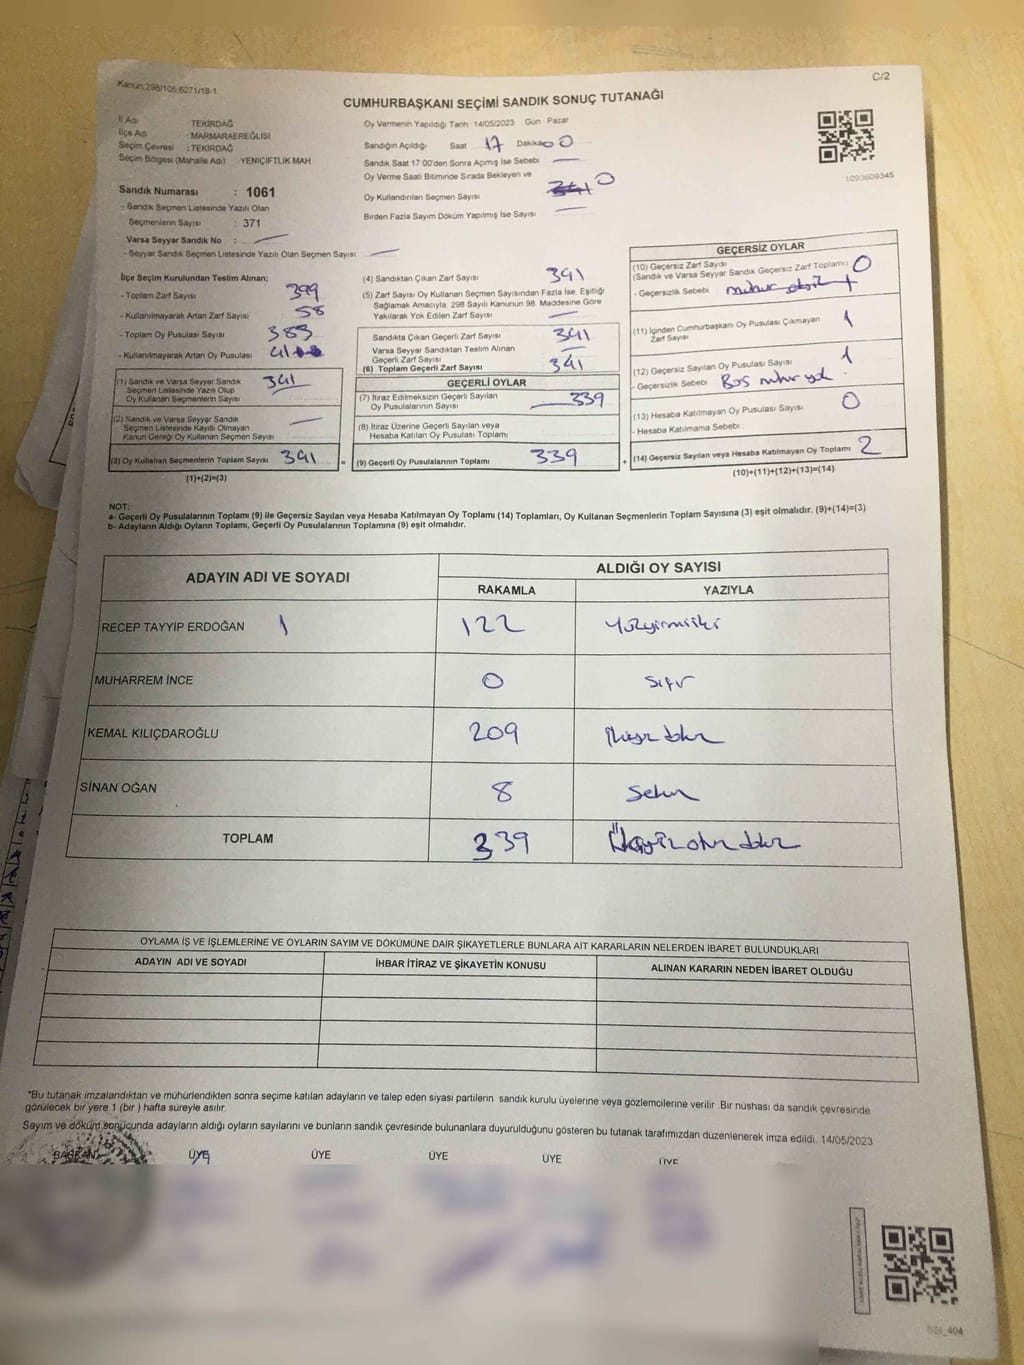 Kanun:298/105;6271/18-1
C/2
CUMHURBAŞKANI SEÇİMİ SANDIK SONUÇ TUTANAĞI
İl Adı : TEKİRDAĞ
İlçe Adı : MARMARAEREĞLİSİ
Seçim Çevresi : TEKİRDAĞ
Seçim Bölgesi (Mahalle Adı) YENİÇİFTLİK MAH
Oy Vermenin Yapıldığı Tarih 14/05/2023 Gün Pazar
Sandığın Açıldığı Saat 17 Dakika 00
Sandık Saat 17:00'den Sonra Açılmış İse Sebebi —
Oy Verme Saati Bitiminde Sırada Bekleyen ve
Oy Kullandırılan Seçmen Sayısı 0
Birden Fazla Sayım Döküm Yapılmış İse Sayısı —
1093609345
Sandık Numarası : 1061
- Sandık Seçmen Listesinde Yazılı Olan
Seçmenlerin Sayısı : 371
Varsa Seyyar Sandık No : —
- Seyyar Sandık Seçmen Listesinde Yazılı Olan Seçmen Sayısı: —
İlçe Seçim Kurulundan Teslim Alınan;
- Toplam Zarf Sayısı 399
- Kullanılmayarak Artan Zarf Sayısı 58
- Toplam Oy Pusulası Sayısı 383
- Kullanılmayarak Artan Oy Pusulası
(1) Sandık ve Varsa Seyyar Sandık
Seçmen Listesinde Yazılı Olup
Oy Kullanan Seçmenlerin Sayısı 341
(2) Sandık ve Varsa Seyyar Sandık
Seçmen Listesinde Kayıtlı Olmayan
Kanun Gereği Oy Kullanan Seçmen Sayısı —
(3) Oy Kullanan Seçmenlerin Toplam Sayısı 341
(1)+(2)=(3)
(4) Sandıktan Çıkan Zarf Sayısı 341
(5) Zarf Sayısı Oy Kullanan Seçmen Sayısından Fazla İse, Eşitliği
Sağlamak Amacıyla, 298 Sayılı Kanunun 98. Maddesine Göre
Yakılarak Yok Edilen Zarf Sayısı —
Sandıkta Çıkan Geçerli Zarf Sayısı 341
Varsa Seyyar Sandıktan Teslim Alınan
Geçerli Zarf Sayısı —
(6) Toplam Geçerli Zarf Sayısı 341
GEÇERLİ OYLAR
(7) İtiraz Edilmeksizin Geçerli Sayılan
Oy Pusulalarının Sayısı 339
(8) İtiraz Üzerine Geçerli Sayılan veya
Hesaba Katılan Oy Pusulası Toplamı
= (9) Geçerli Oy Pusulalarının Toplamı 339
GEÇERSİZ OYLAR
(10) Geçersiz Zarf Sayısı
(Sandık ve Varsa Seyyar Sandık Geçersiz Zarf Toplamı) 0
- Geçersizlik Sebebi
(11) İçinden Cumhurbaşkanı Oy Pusulası Çıkmayan
Zarf Sayısı 1
(12) Geçersiz Sayılan Oy Pusulası Sayısı 1
- Geçersizlik Sebebi Boş mühür yok
(13) Hesaba Katılmayan Oy Pusulası Sayısı 0
- Hesaba Katılmama Sebebi :
+ (14) Geçersiz Sayılan veya Hesaba Katılmayan Oy Toplamı 2
(10)+(11)+(12)+(13)=(14)
NOT:
a- Geçerli Oy Pusulalarının Toplamı (9) ile Geçersiz Sayılan veya Hesaba Katılmayan Oy Toplamı (14) Toplamları, Oy Kullanan Seçmenlerin Toplam Sayısına (3) eşit olmalıdır. (9)+(14)=(3)
b- Adayların Aldığı Oyların Toplamı, Geçerli Oy Pusulalarının Toplamına (9) eşit olmalıdır.
ADAYIN ADI VE SOYADI
ALDIĞI OY SAYISI
RAKAMLA YAZIYLA
RECEP TAYYİP ERDOĞAN 122 Yüzyirmiiki
MUHARREM İNCE 0 Sıfır
KEMAL KILIÇDAROĞLU 209 ikiyüz dokuz
SİNAN OĞAN 8 Sekiz
TOPLAM 339 Üçyüz otuz dokuz
OYLAMA İŞ VE İŞLEMLERİNE VE OYLARIN SAYIM VE DÖKÜMÜNE DAİR ŞİKAYETLERLE BUNLARA AİT KARARLARIN NELERDEN İBARET BULUNDUKLARI
ADAYIN ADI VE SOYADI
İHBAR İTİRAZ VE ŞİKAYETİN KONUSU
ALINAN KARARIN NEDEN İBARET OLDUĞU
"Bu tutanak imzalandıktan ve mühürlendikten sonra seçime katılan adayların ve talep eden siyasi partilerin sandık kurulu üyelerine veya gözlemcilerine verilir. Bir nüshası da sandık çevresinde
görülecek bir yere 1 (bir ) hafta süreyle asılır.
Sayım ve döküm sonucunda adayların aldığı oyların sayılarını ve bunların sandık çevresinde bulunanlara duyurulduğunu gösteren bu tutanak tarafımızdan düzenlenerek imza edildi. 14/05/2023
BAŞKAN ÜYE ÜYE ÜYE ÜYE ÜYE